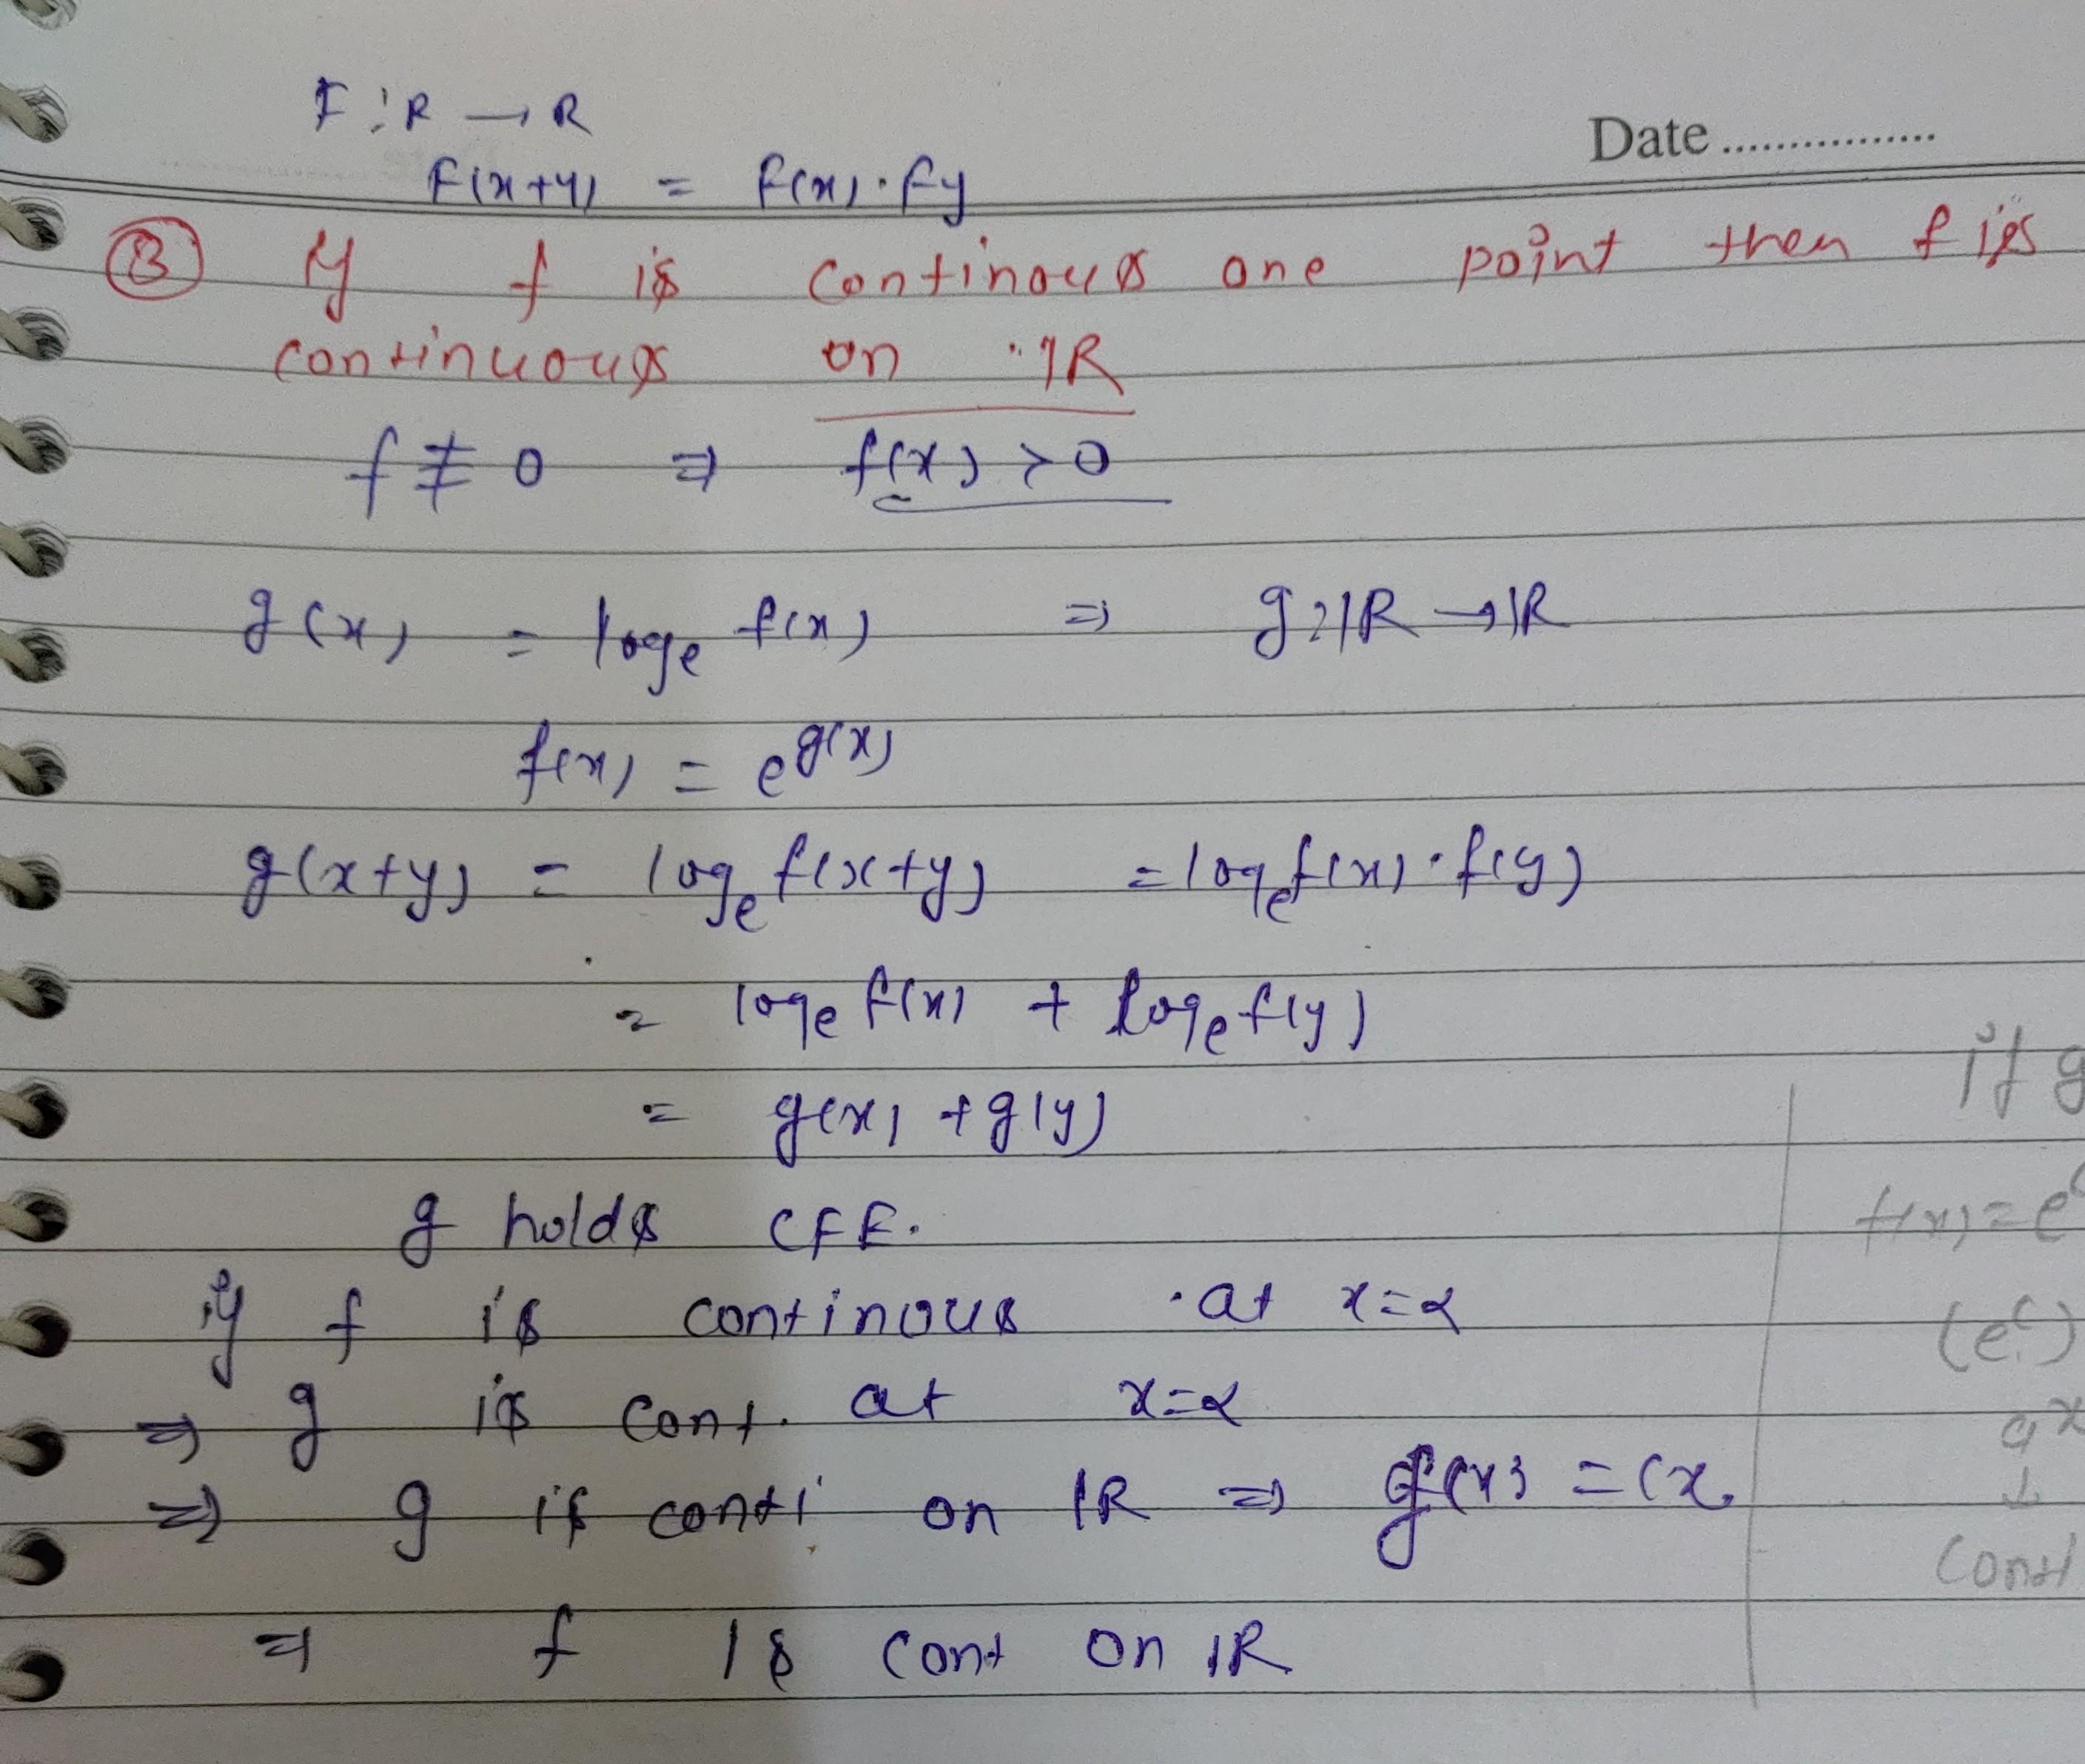 F : R → R
Date ................
F(x+y) = f(x) · fy
③ If f is continous one point then f is
continuous on IR
f ≢ 0 ⇒ f(x) > 0
g(x) = logₑ f(x) ⇒ g : IR → IR
f(x) = e^g(x)
g(x+y) = logₑ f(x+y) = logₑ f(x) · f(y)
= logₑ f(x) + logₑ f(y)
if g
= g(x) + g(y)
g holds CFE.
f(x) = e
if f is continous at x=α
(eᶜ)
⇒ g is cont. at x=α
aˣ
⇒ g is conti on IR ⇒ g(x) = cx
↓
cont
⇒ f is cont on IR